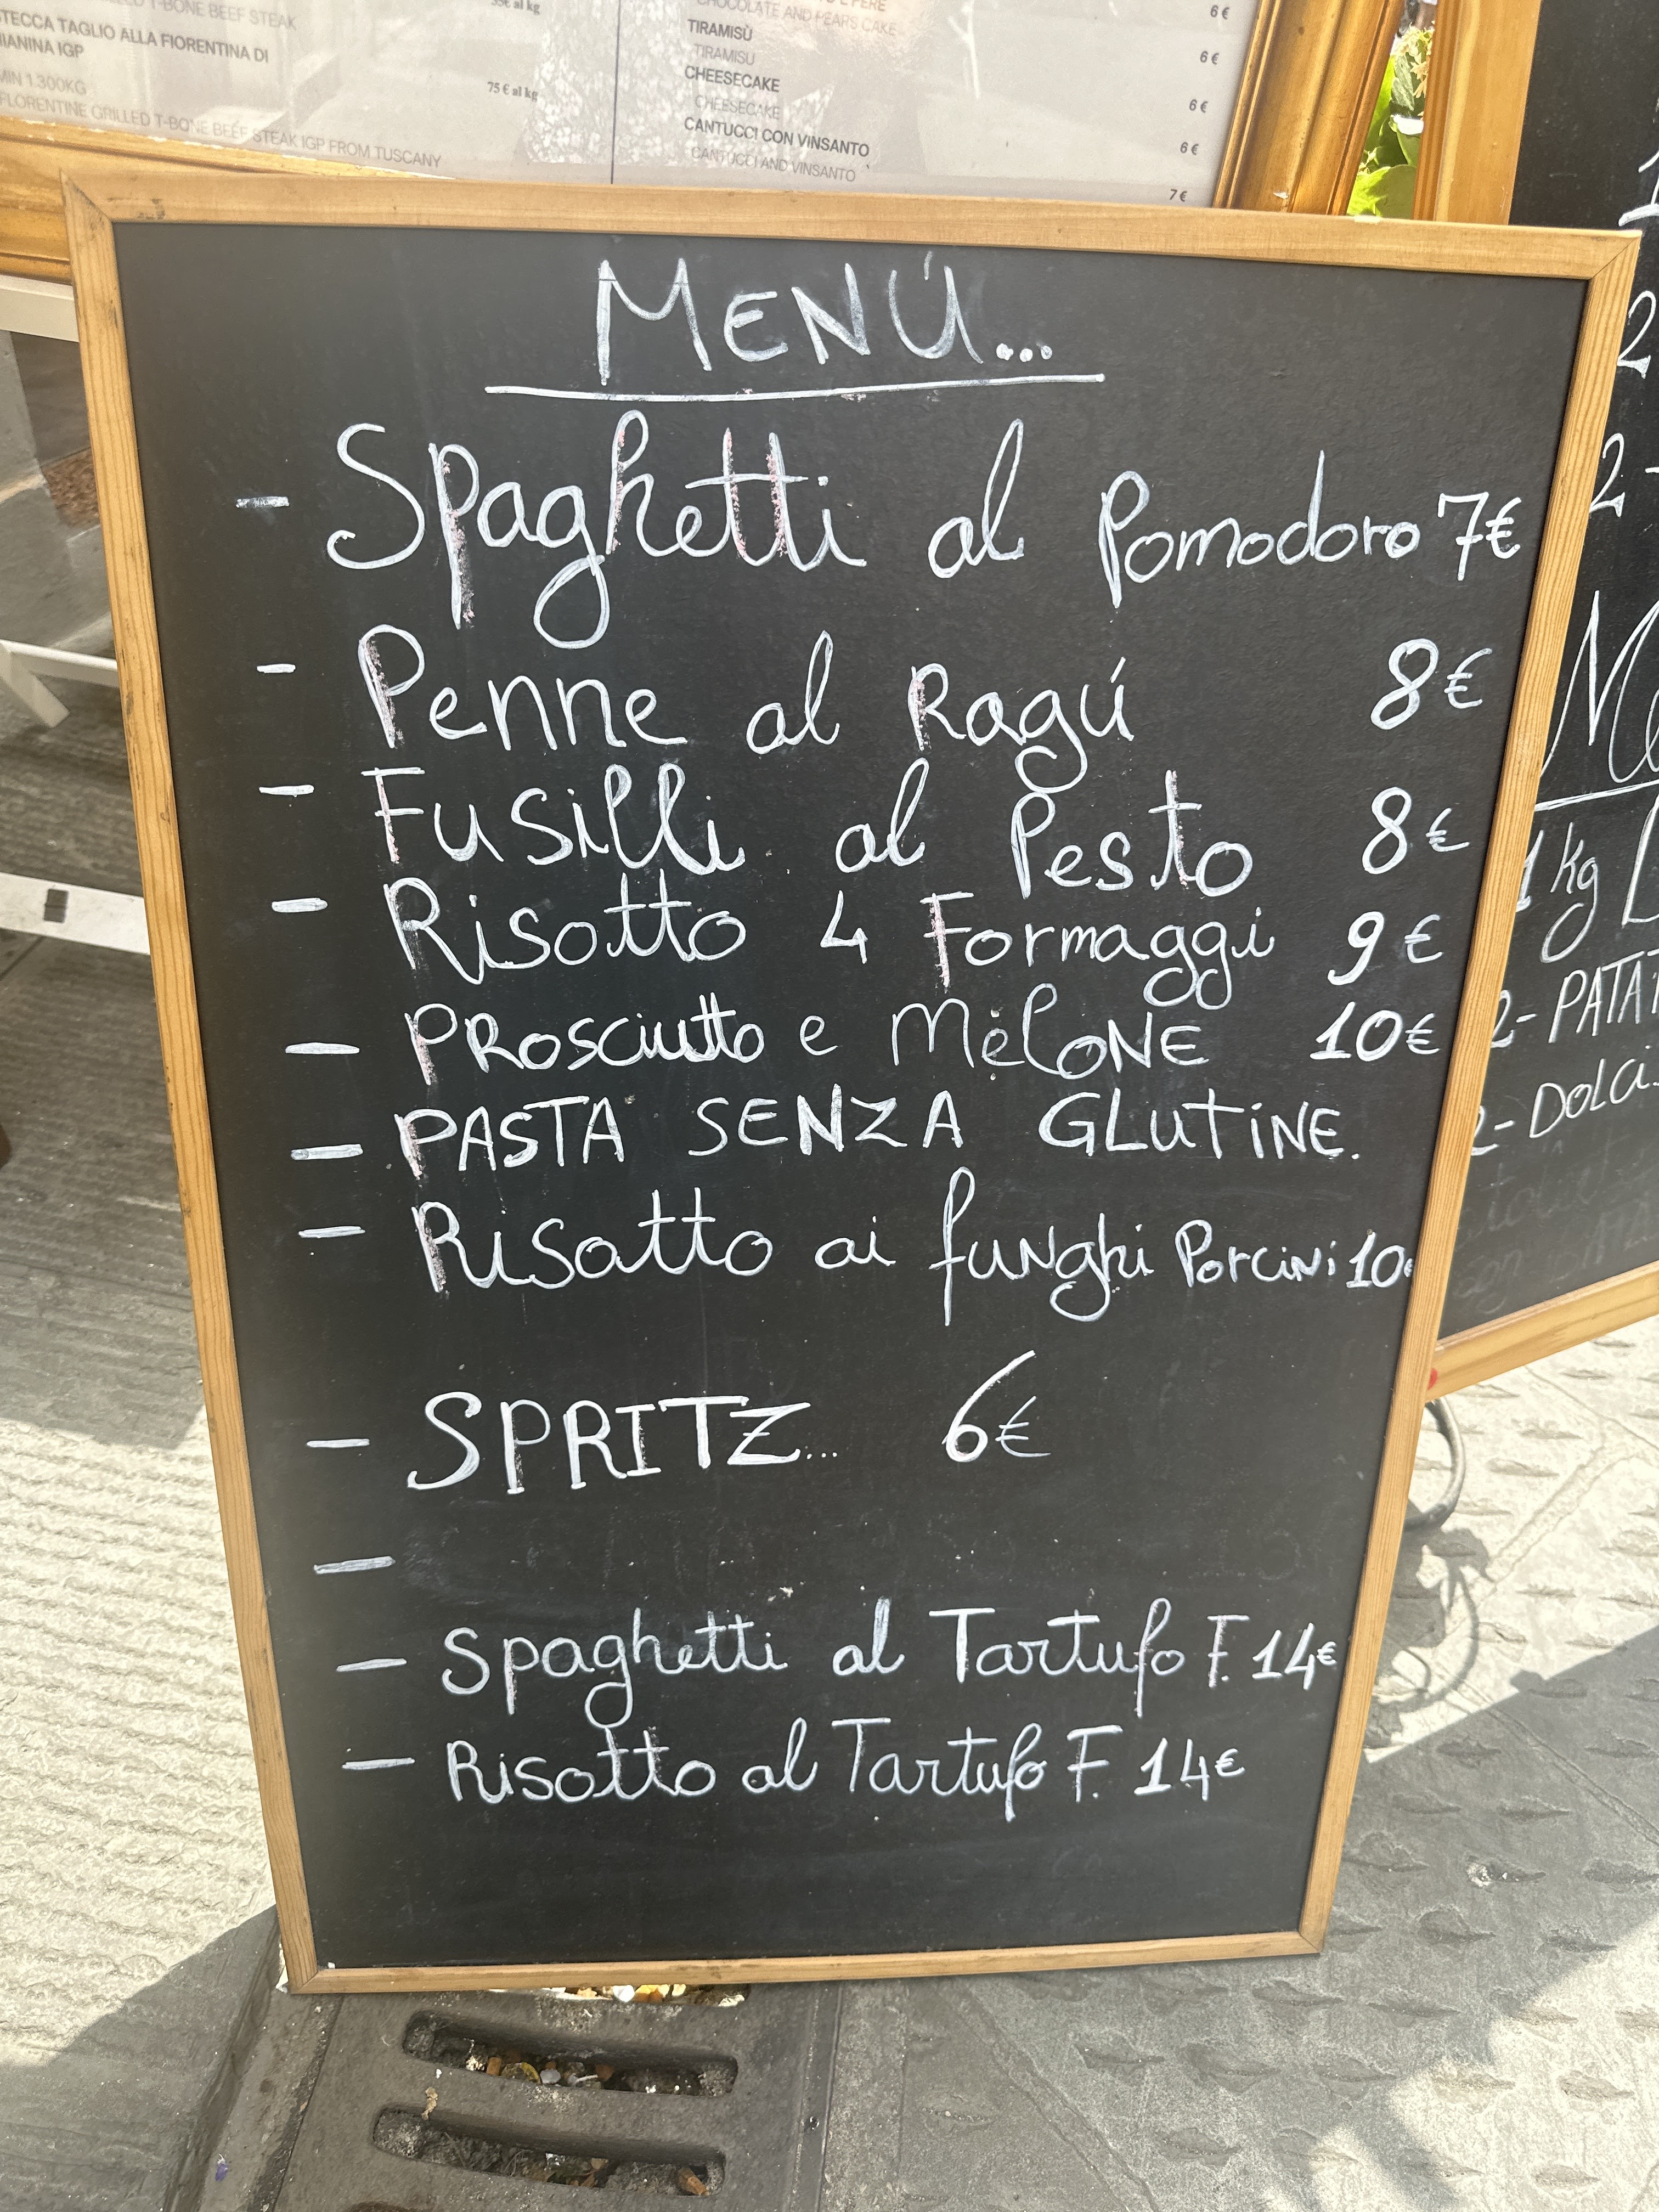 T-BONE BEEF STEAK
TECCA TAGLIO ALLA FIORENTINA DI
IANINA IGP
MIN 1.300KG
75 € al kg
FLORENTINE GRILLED T-BONE BEEF STEAK IGP FROM TUSCANY
CHOCOLATE AND PEARS CAKE
6 €
TIRAMISÙ
TIRAMISÙ
6 €
CHEESECAKE
CHEESECAKE
6 €
CANTUCCI CON VINSANTO
6 €
CANTUCCI AND VINSANTO
7 €
MENÚ...
- Spaghetti al Pomodoro 7€
- Penne al Ragú 8€
- Fusilli al Pesto 8€
- Risotto 4 Formaggi 9€
- PROSCiutto e MELONE 10€
- PASTA SENZA GLUTiNE.
- Risotto ai funghi Porcini 10€
- SPRITZ... 6€
-
- Spaghetti al Tartufo F. 14€
- Risotto al Tartufo F. 14€
2
2 -
1 kg
2- PATAT
2- DOLCi